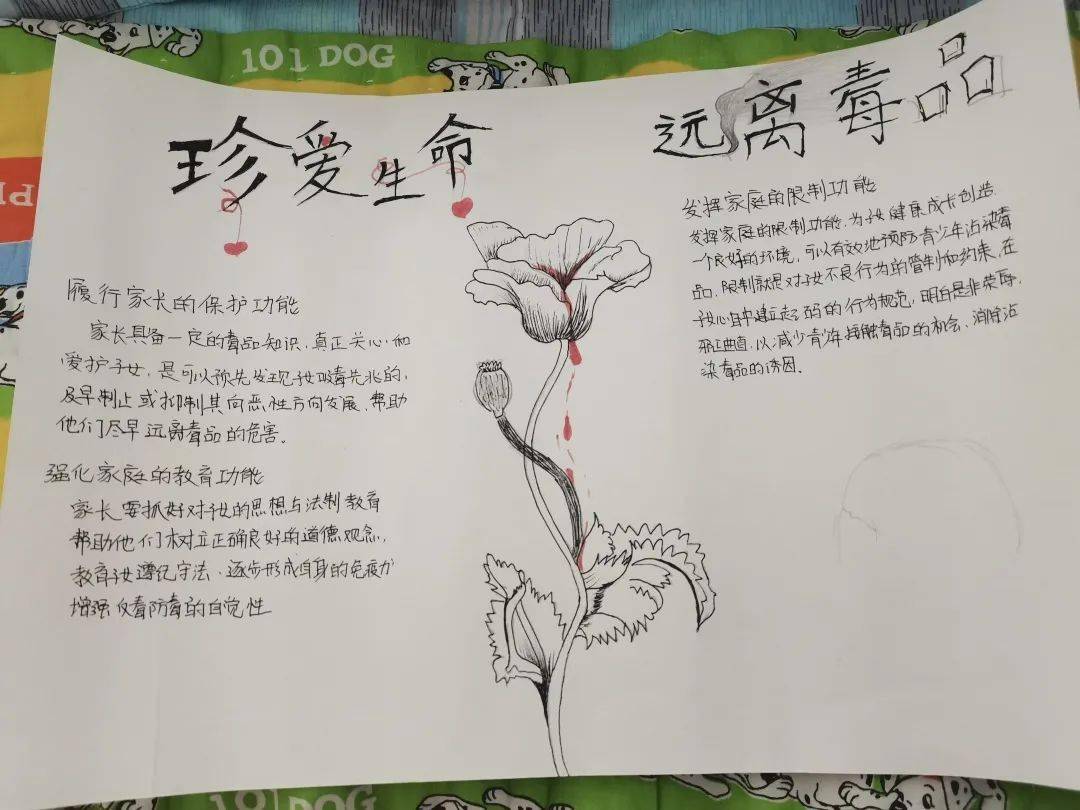 101 DOG
珍爱生命
远离毒品
履行家长的保护功能
家长具备一定的毒品知识，真正关心和
爱护子女，是可以预先发现子女吸毒先兆的，
及早制止或抑制其向恶性方向发展，帮助
他们尽早远离毒品的危害。
强化家庭的教育功能
家长要抓好对子女的思想与法制教育
帮助他们树立正确良好的道德观念，
教育子女遵纪守法、逐步形成自身的免疫力
增强反毒防毒的自觉性
发挥家庭的限制功能
发挥家庭的限制功能，为子女健康成长创造
一个良好的环境，可以有效地预防青少年沾染毒
品，限制就是对子女不良行为的管制和约束，在
子女心目中建立起的行为规范，明白是非荣辱，
邪正曲直，以减少青少年接触毒品的机会，消除沾
染毒品的诱因。
101 DOG